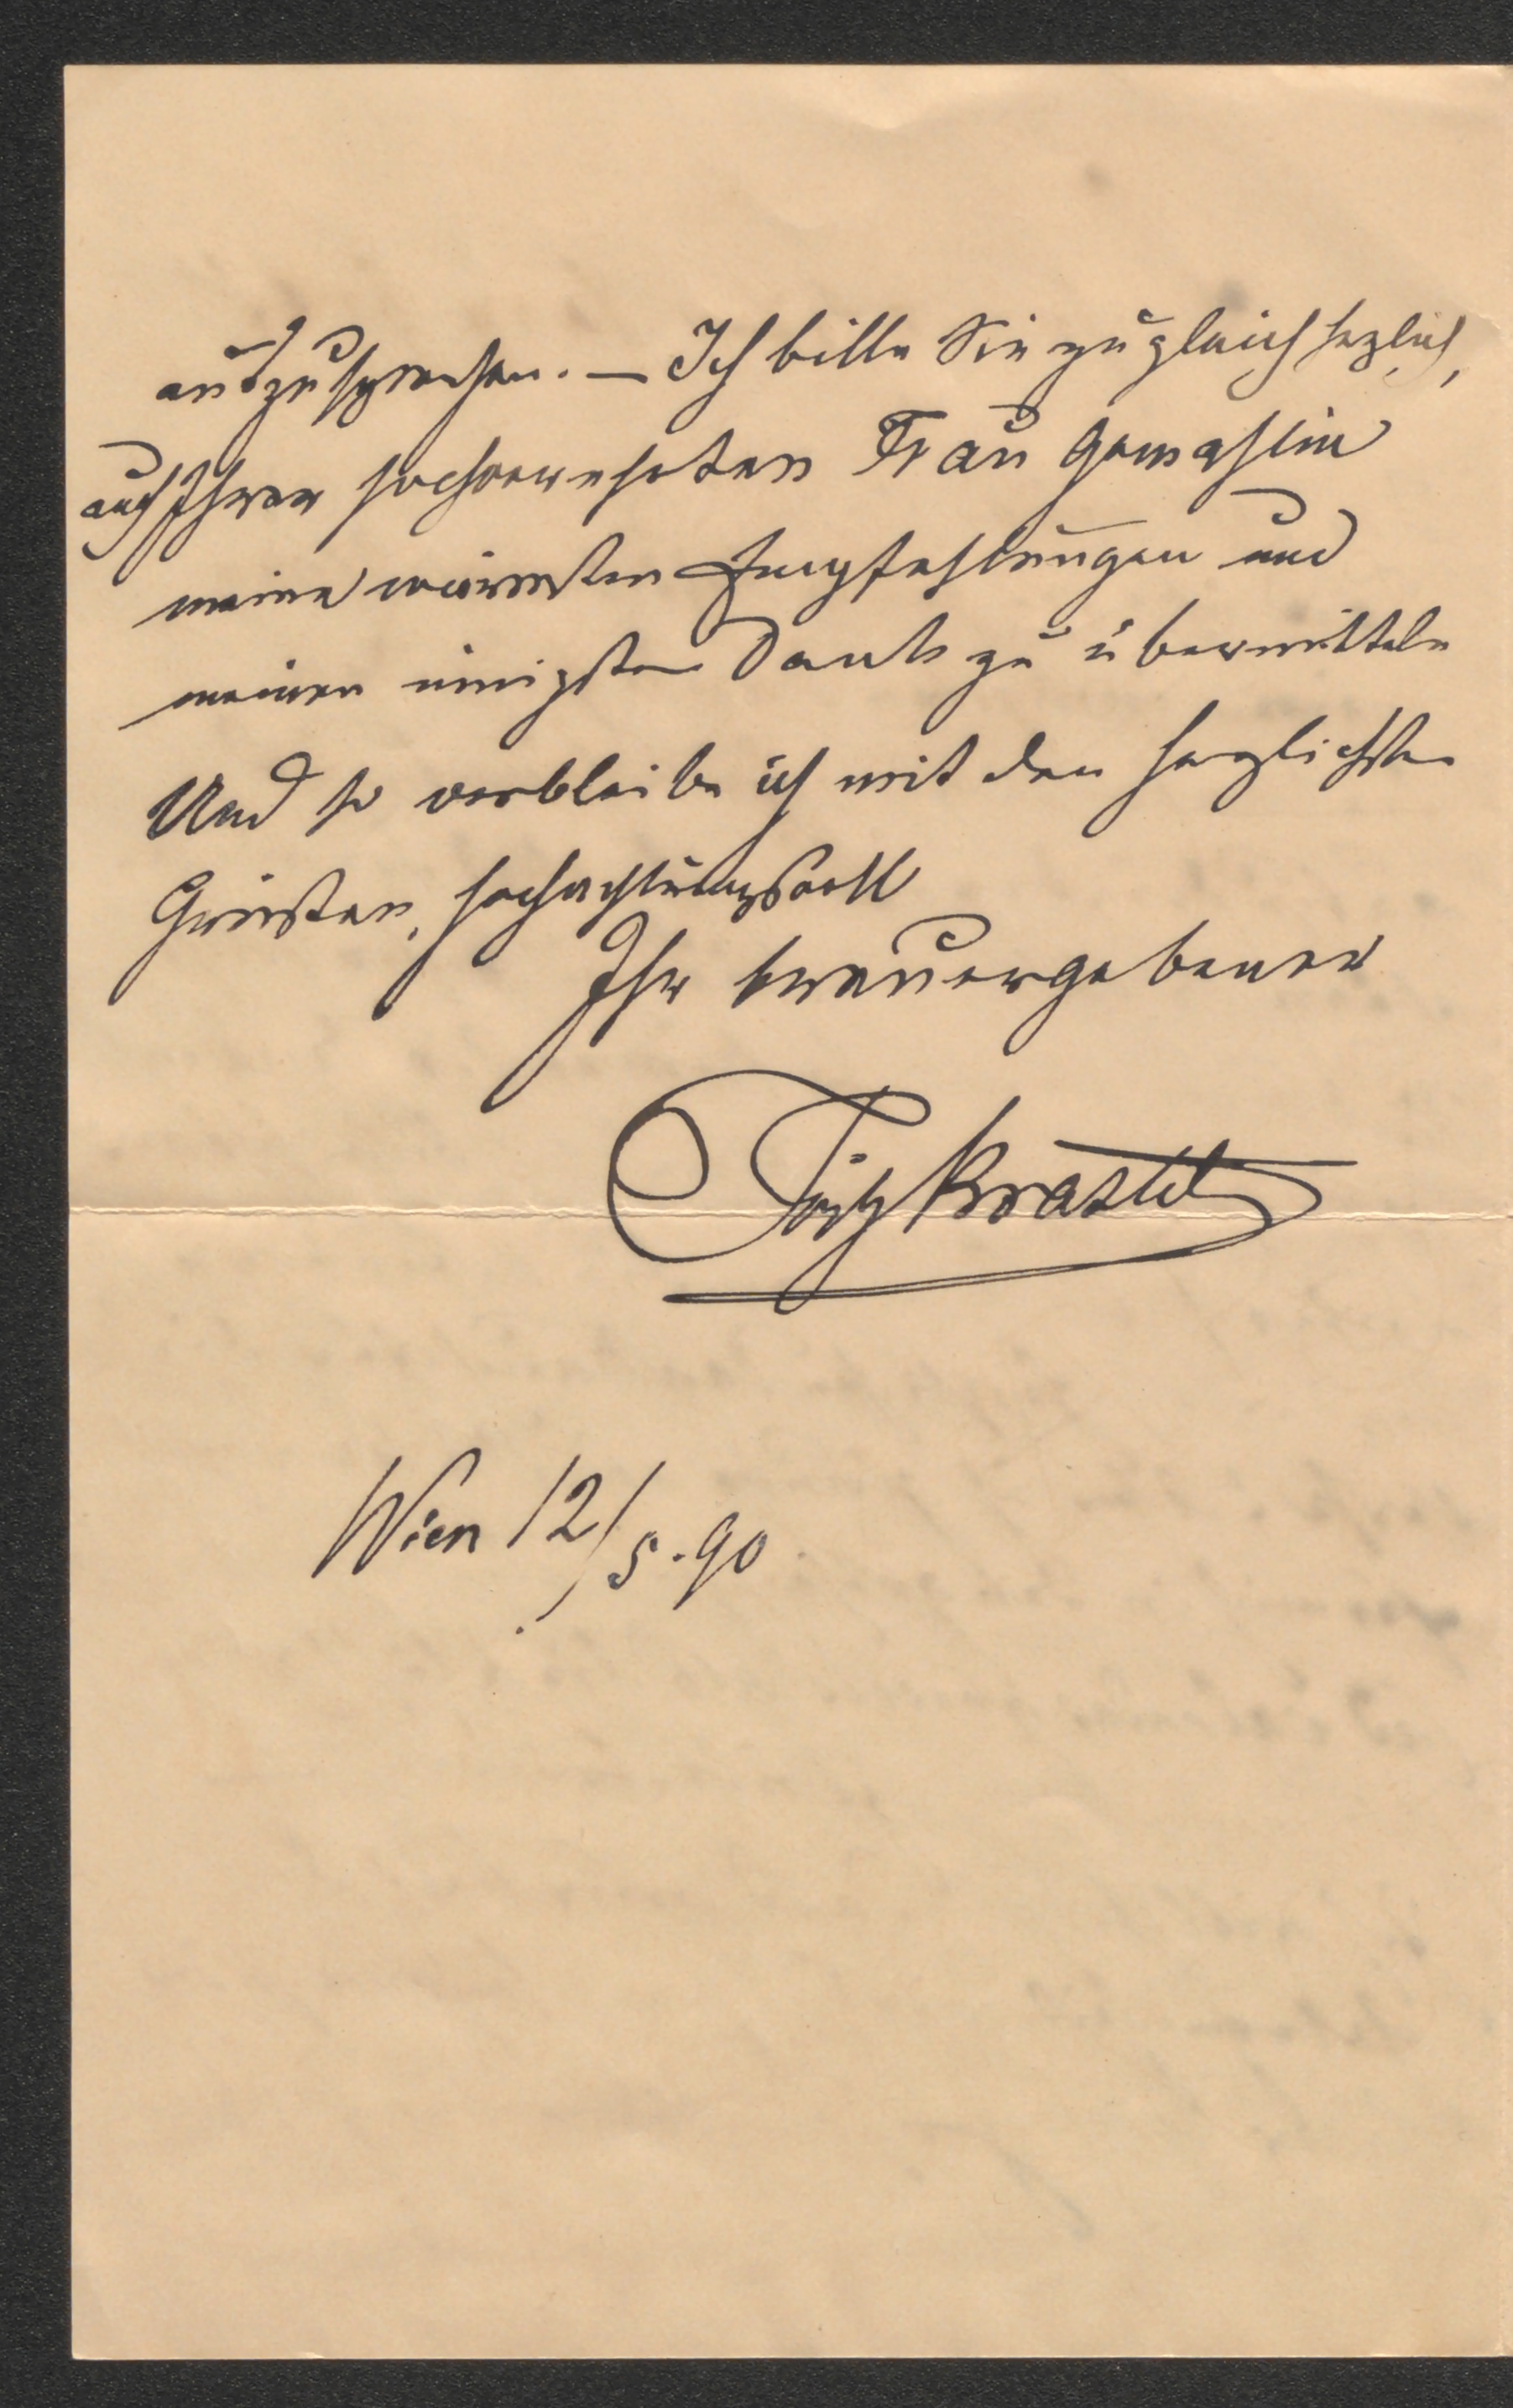 auszusprechen. — Ich bitte Sie zugleich herzlich,
auch Ihrer hochverehrten Frau Gemahlin
meine wärmsten Empfehlungen und
meinen innigsten Dank zu übermitteln
Und so verbleibe ich mit den herzlichsten
Grüssen, hochachtungsvoll
Ihr treuergebener
Fritz Krastel
Wien 12/5. 90.